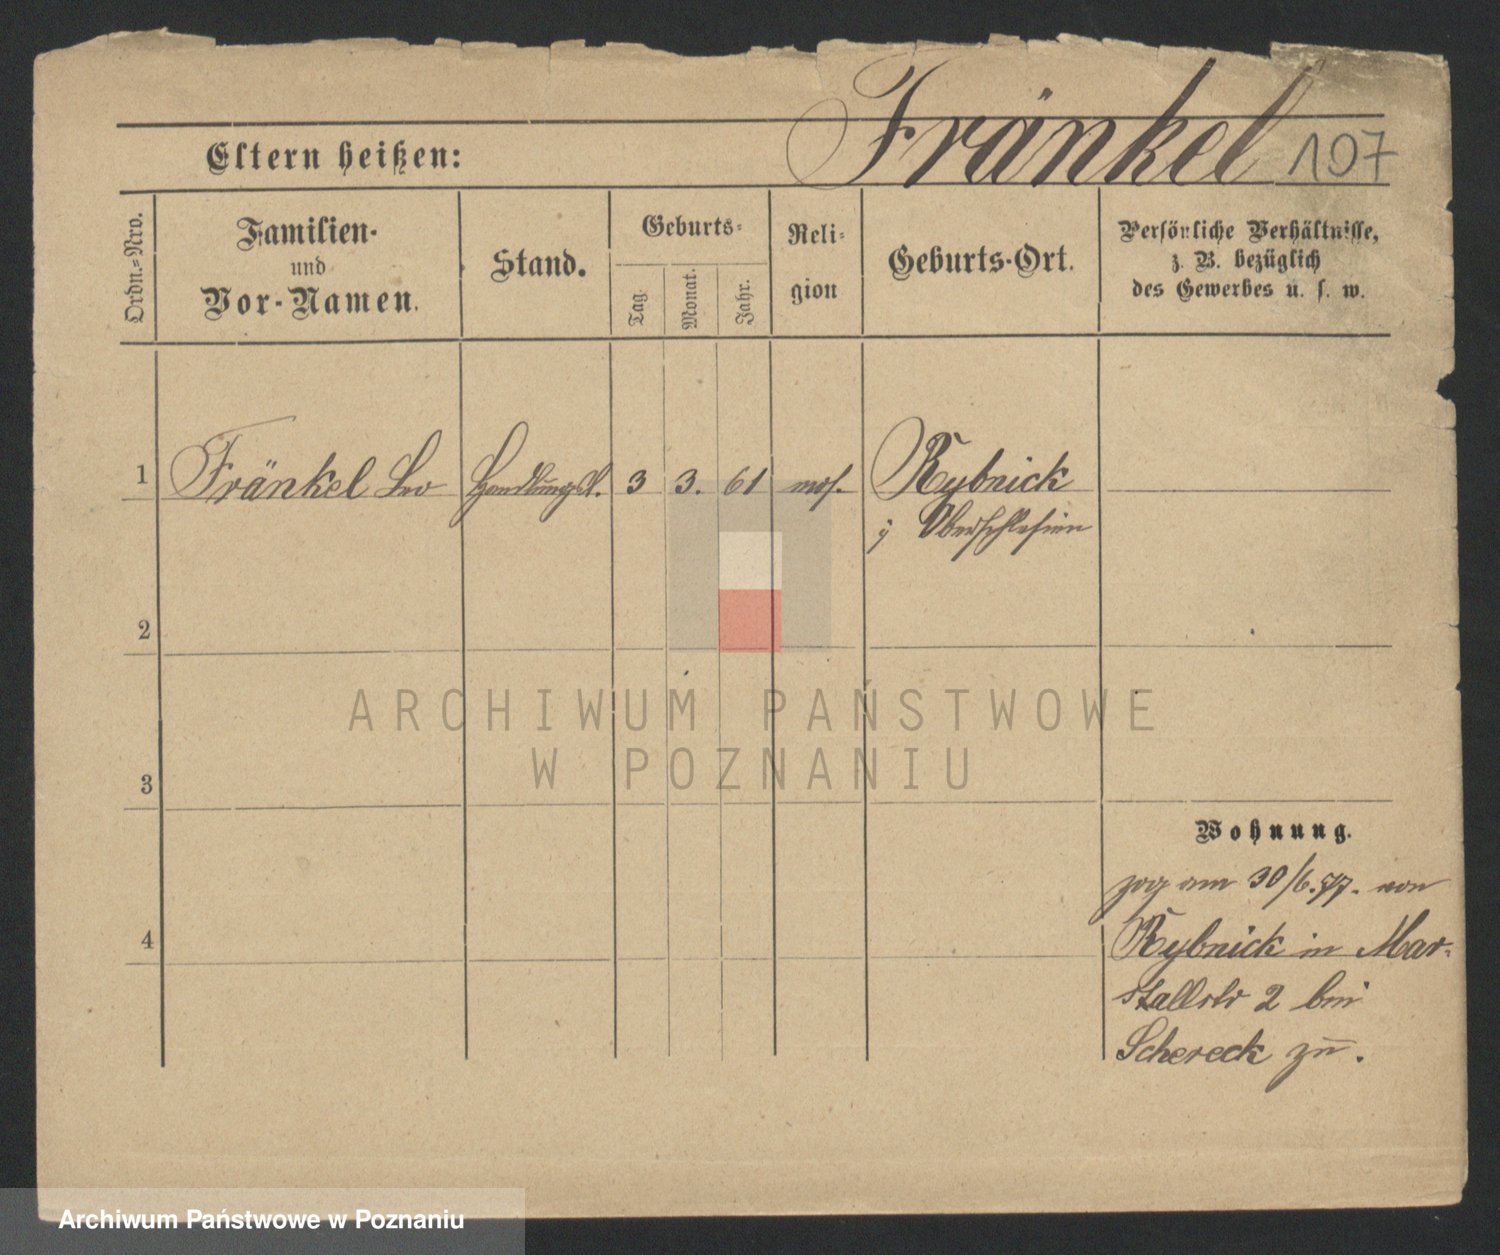 Fränkel 107
Eltern heißen:
Ordn.-Nro.
Familien-
und
Vor-Namen.
Stand.
Geburts-
Tag.
Monat.
Jahr.
Reli-
gion
Geburts-Ort.
Persönliche Verhältnisse,
z. B. bezüglich
des Gewerbes u. s. w.
1 Fränkel Leo Handlungsl. 3 3. 61 mos. Rybnick
Oberschlesien
2
3
4
ARCHIWUM PAŃSTWOWE
W POZNANIU
Wohnung.
zog am 30/6.77. von
Rybnick in Mar-
stallstr 2 bei
Schereck zu.
Archiwum Państwowe w Poznaniu